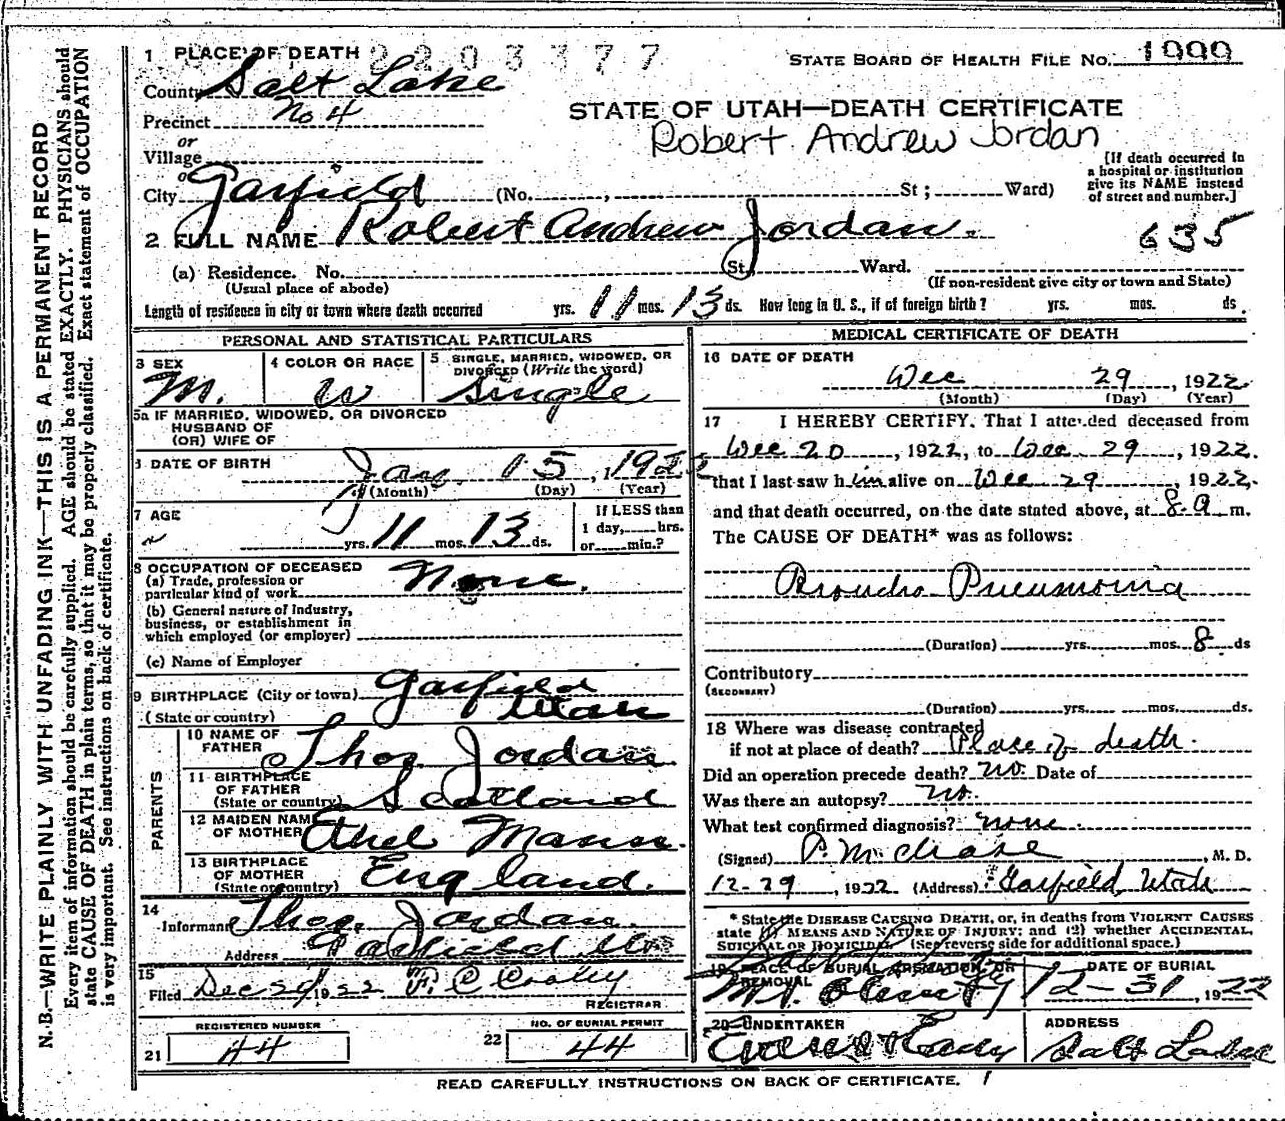 N.B.—WRITE PLAINLY WITH UNFADING INK—THIS IS A PERMANENT RECORD
Every item of information should be carefully supplied. AGE should be stated EXACTLY. PHYSICIANS should
state CAUSE OF DEATH in plain terms, so that it may be properly classified. Exact statement of OCCUPATION
is very important. See instructions on back of certificate.
1 PLACE OF DEATH 2203377
STATE BOARD OF HEALTH FILE No. 1999
County Salt Lake
STATE OF UTAH—DEATH CERTIFICATE
Precinct No 4
Robert Andrew Jordan
or
Village
or
City Garfield (No. , St ; Ward)
[If death occurred in
a hospital or institution
give its NAME instead
of street and number.]
2 FULL NAME Robert Andrew Jordan. 635
(a) Residence. No. St. Ward.
(Usual place of abode) (If non-resident give city or town and State)
Length of residence in city or town where death occurred yrs. 11 mos. 13 ds. How long in U. S., if of foreign birth? yrs. mos. ds.
PERSONAL AND STATISTICAL PARTICULARS
3 SEX M.
4 COLOR OR RACE W
5 SINGLE, MARRIED, WIDOWED, OR
DIVORCED (Write the word)
Single
5a IF MARRIED, WIDOWED, OR DIVORCED
HUSBAND OF
(OR) WIFE OF
DATE OF BIRTH Jan. 15, 1922
(Month) (Day) (Year)
7 AGE yrs. 11 mos. 13 ds.
If LESS than
1 day, hrs.
or min.?
8 OCCUPATION OF DECEASED
(a) Trade, profession or
particular kind of work None.
(b) General nature of Industry,
business, or establishment in
which employed (or employer)
(c) Name of Employer
9 BIRTHPLACE (City or town) Garfield
(State or country) Utah
PARENTS
10 NAME OF
FATHER Thos Jordan.
11 BIRTHPLACE
OF FATHER
(State or country) Scotland
12 MAIDEN NAME
OF MOTHER Ethel
13 BIRTHPLACE
OF MOTHER
(State or country) England.
14
Informant Thos. Jordan
Address Garfield
15
Filed Dec 29 1922
REGISTRAR
REGISTERED NUMBER
21 44
NO. OF BURIAL PERMIT
22 44
MEDICAL CERTIFICATE OF DEATH
16 DATE OF DEATH
Dec 29, 1922
(Month) (Day) (Year)
17 I HEREBY CERTIFY. That I attended deceased from
Dec 20, 1922, to Dec 29, 1922.
that I last saw him alive on Dec 29, 1922.
and that death occurred, on the date stated above, at 8 a m.
The CAUSE OF DEATH* was as follows:
Broncho Pneumonia
(Duration) yrs. mos. 8 ds
Contributory
(SECONDARY)
(Duration) yrs. mos. ds.
18 Where was disease contracted
if not at place of death? Place of death.
Did an operation precede death? No. Date of
Was there an autopsy? No.
What test confirmed diagnosis? none.
(Signed) , M. D.
12-29, 1922 (Address) Garfield Utah
* State the DISEASE CAUSING DEATH, or, in deaths from VIOLENT CAUSES
state (1) MEANS AND NATURE OF INJURY: and (2) whether ACCIDENTAL,
SUICIDAL OR HOMICIDAL (See reverse side for additional space.)
19 PLACE OF BURIAL CREMATION, OR
REMOVAL Mt. Olivet
DATE OF BURIAL
12-31, 1922
20 UNDERTAKER
ADDRESS
Salt Lake
READ CAREFULLY INSTRUCTIONS ON BACK OF CERTIFICATE.